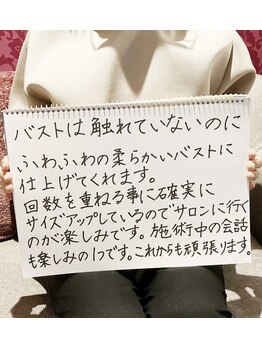 バストは触れていないのに
ふわふわの柔らかいバストに
仕上げてくれます。
回数を重ねる事に確実に
サイズアップしているのでサロンに行く
のが楽しみです。施術中の会話
も楽しみの1つです。これからも頑張ります。